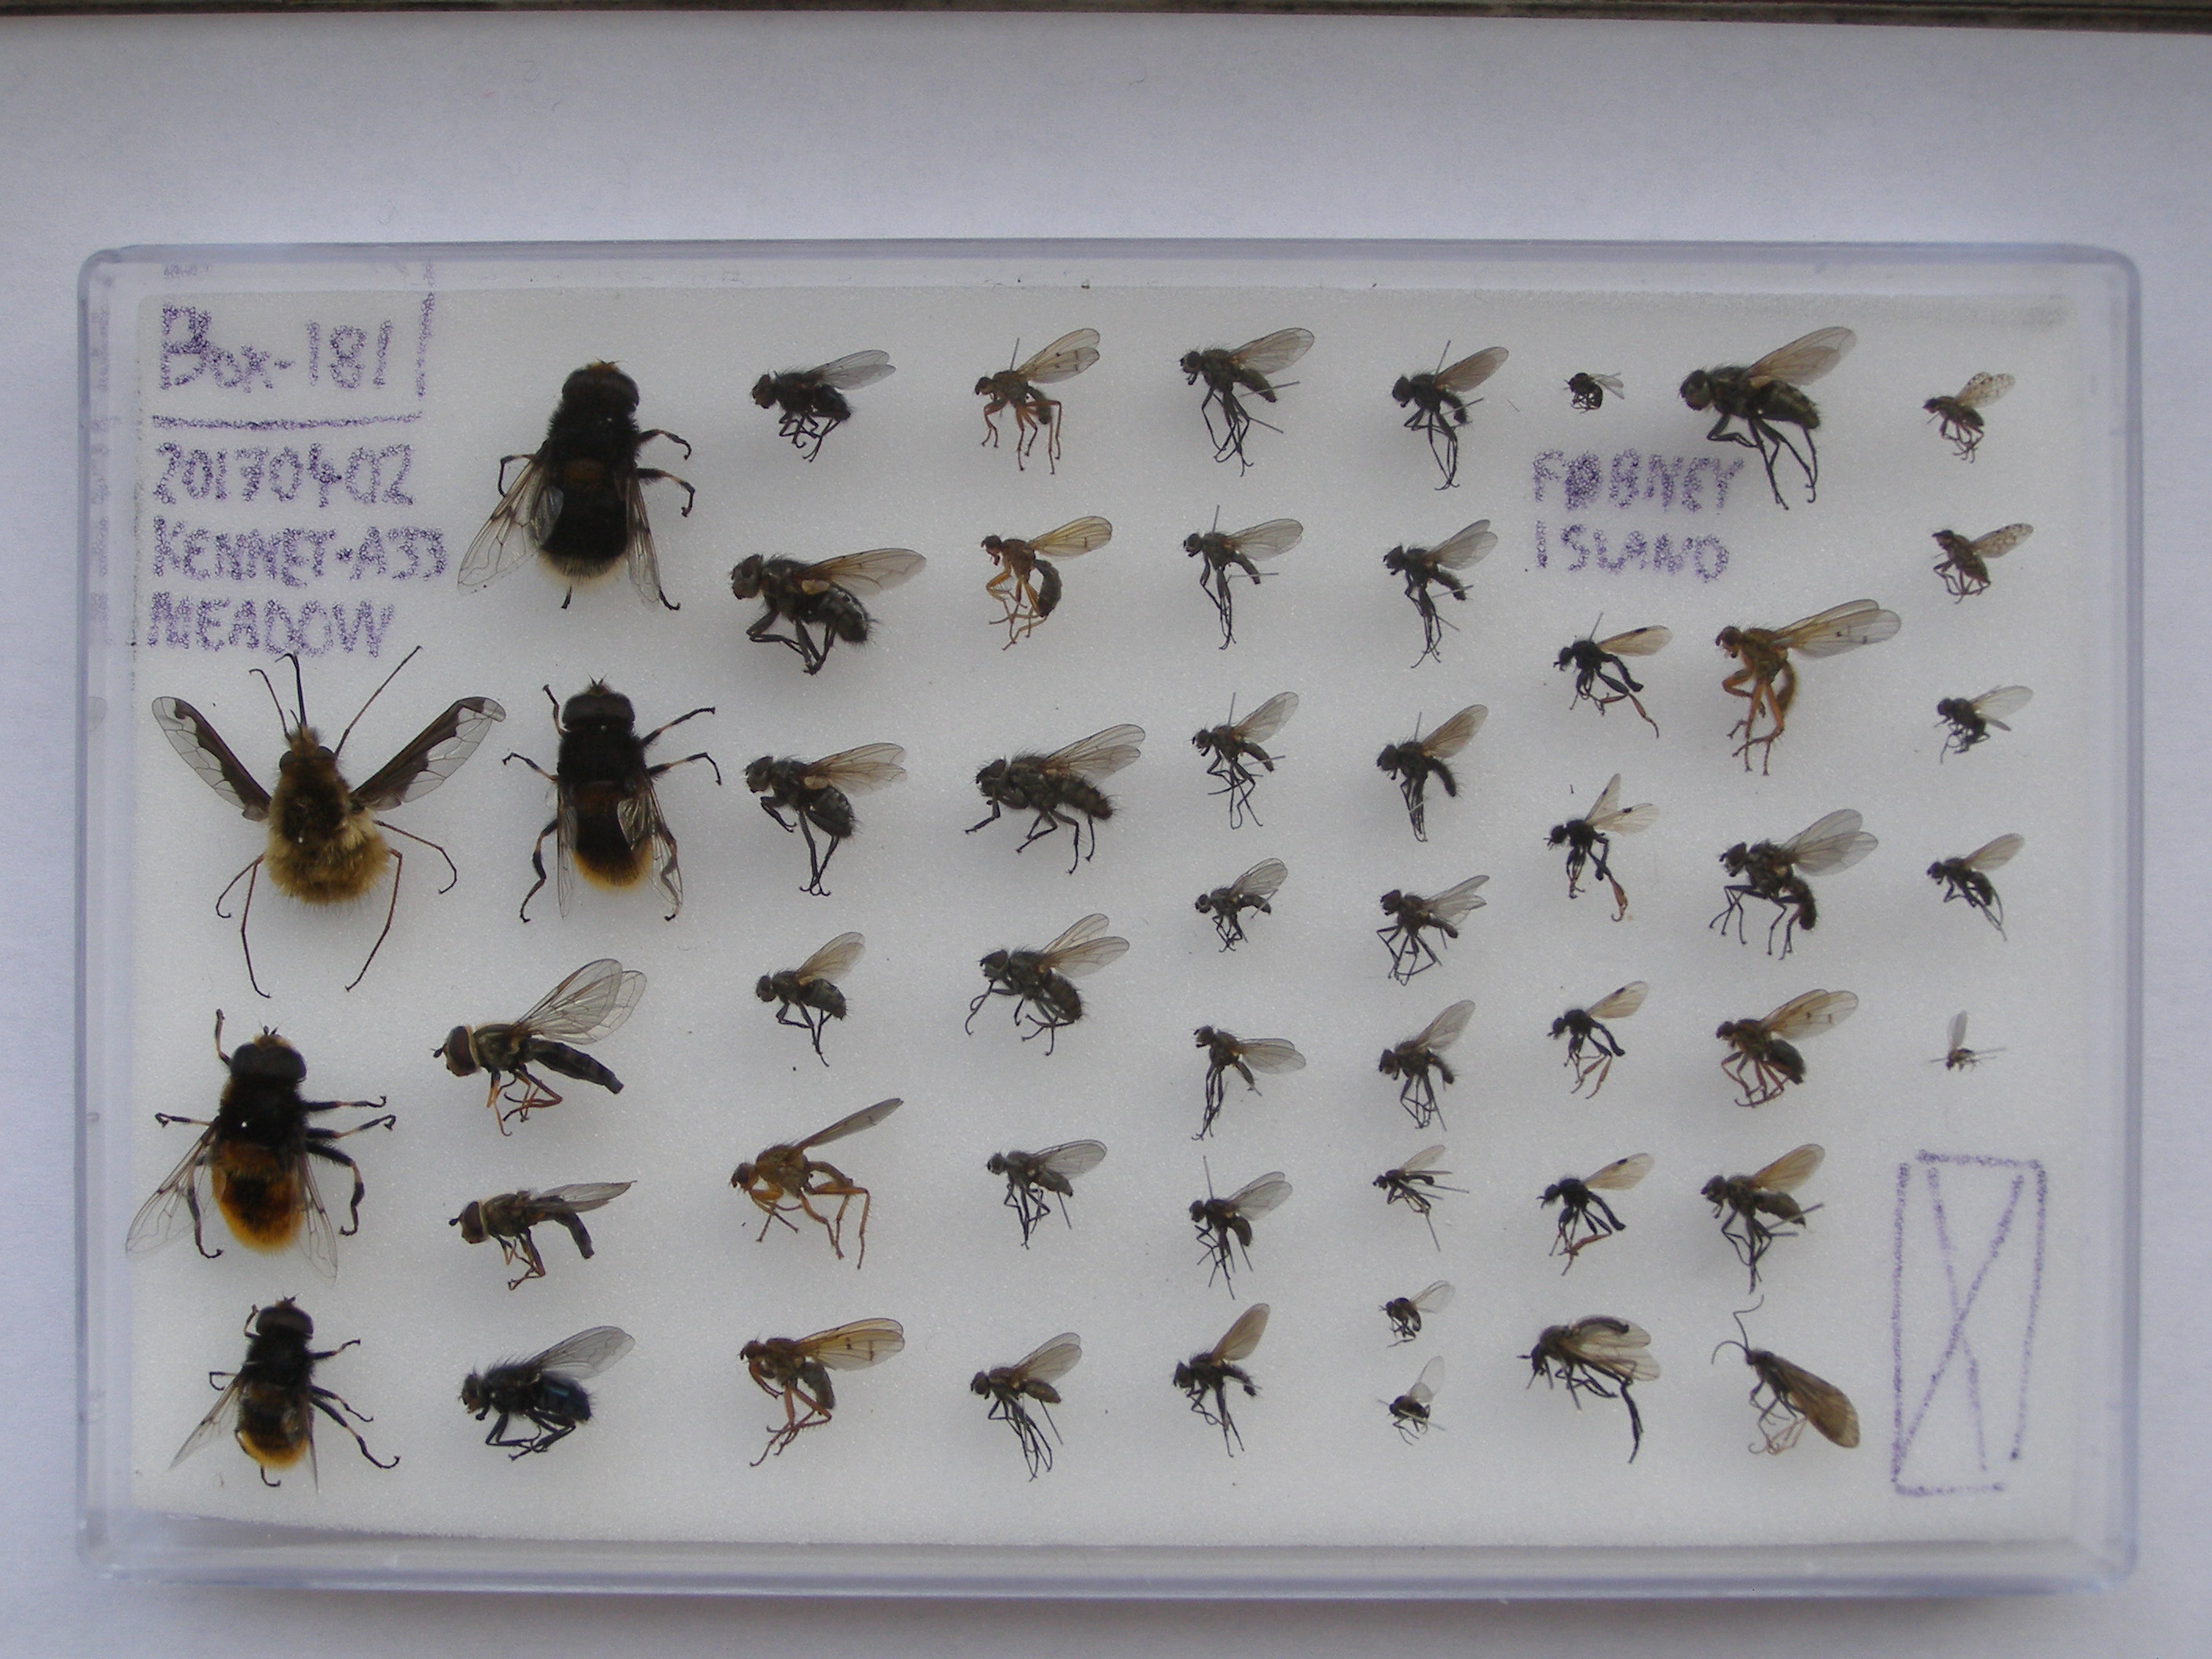 Box-181
20170402
KENNET-A33
MEADOW
FOBNEY
ISLAND